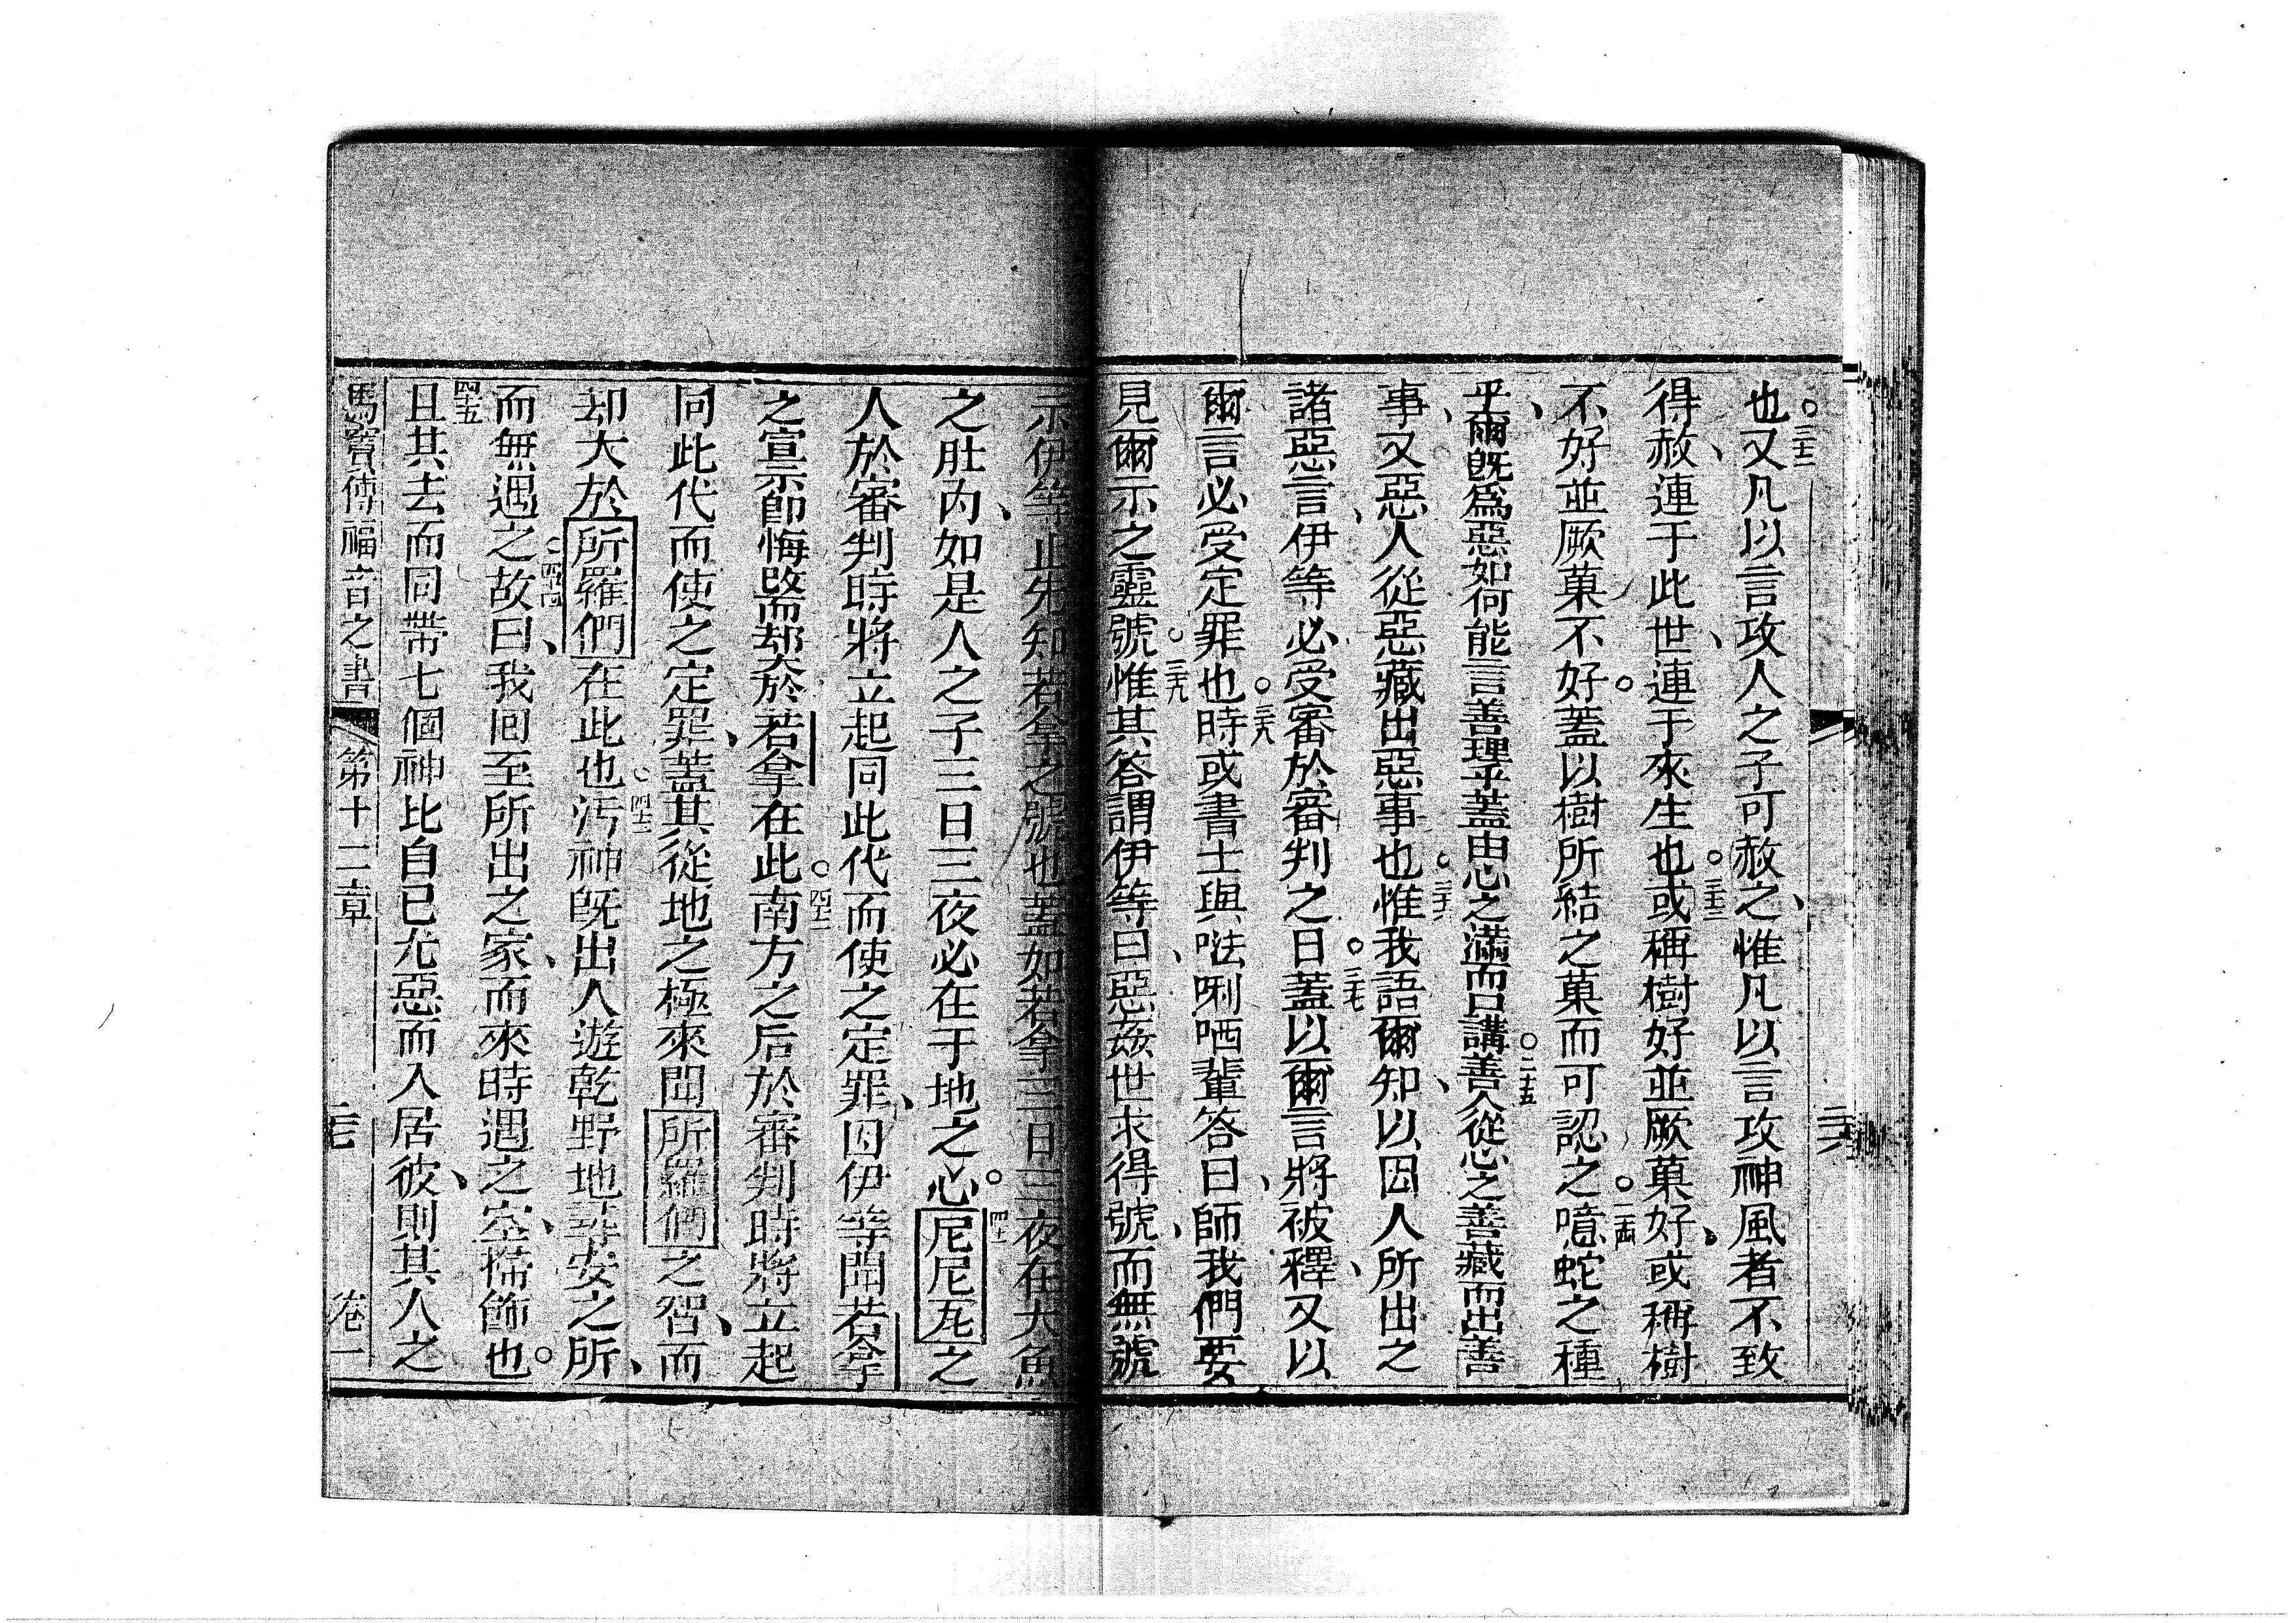 也。三十二又凡以言攻人之子可赦之、惟凡以言攻神風者不致
得赦、連于此世、連于來生也。三十三或稱樹好並厥菓好、或稱樹
不好並厥菓不好。蓋以樹所結之菓而可認之。三十四噫蛇之種
乎、爾旣爲惡如何能言善理乎蓋由心之滿而口講。三十五善人從心之善藏而出善
事、又惡人從惡藏出惡事也。三十六惟我語爾知、以因人所出之
諸惡言、伊等必受審於審判之日。三十七蓋以爾言將被釋、又以
爾言必受定罪也。三十八時或書士與𠵽唎哂輩答曰、師我們要
見爾示之靈號。三十九惟其答謂伊等曰、惡姦世求得號、而無號
示伊等、止先知若拿之號也蓋如若拿三日三夜在大魚
之肚內、如是人之子三日三夜必在于地之心。四十一尼尼瓦之
人於審判時將立起同此代而使之定罪、因伊等聞若拿
之宣示卽悔改而却大於若拿在此。四十二南方之后於審判時將立起
同此代而使之定罪、蓋其從地之極來聞所羅們之智、而
却大於所羅們在此也。四十三污神旣出人遊乾野地尋安之所、
而無遇之。四十四故曰、我回至所出之家、而來時遇之空、掃飾也。
四十五且其去而同帶七個神比自己尤惡而入居彼、則其人之
馬竇傳福音之書 第十二章 三七 卷一